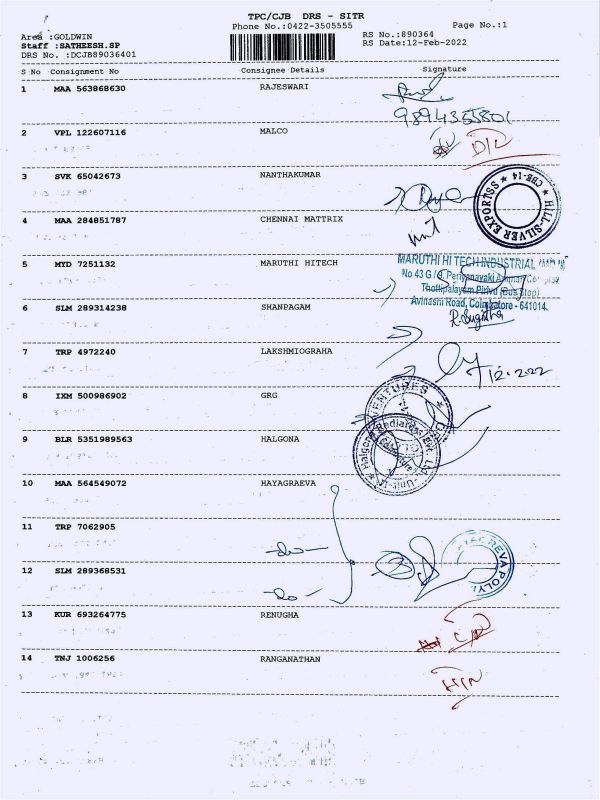 TPC/CJB DRS - SITR
Phone No.:0422-3505555
Page No.:1
Area :GOLDWIN
Staff :SATHEESH.SP
DRS No. :DCJB89036401
RS No.:890364
RS Date:12-Feb-2022
S No Consignment No Consignee Details Signature
1 MAA 563868630 RAJESWARI
9894355801
2 VPL 122607116 MALCO
D/L
3 SVK 65042673 NANTHAKUMAR
HILL-SILVER EXPORTSS ★ CBE-14 ★
4 MAA 284851787 CHENNAI MATTRIX
5 MYD 7251132 MARUTHI HITECH
MARUTHI HI TECH INDUSTRIAL
No 43 G
Thottipalayam Pirivu (Bus Stop)
Avinashi Road, Coimbatore - 641014.
6 SLM 289314238 SHANPAGAM
R.Sugitha
7 TRP 4972240 LAKSHMIOGRAHA
12.2022
8 IXM 500986902 GRG
VENTURES
9 BLR 5351989563 HALGONA
Halgona Radiators Pvt. Ltd.
10 MAA 564549072 HAYAGRAEVA
11 TRP 7062905
-do-
12 SLM 289368531
-do-
13 KUR 693264775 RENUGHA
14 TNJ 1006256 RANGANATHAN